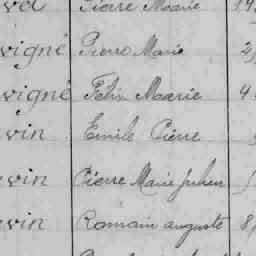 vet Pierre Marie 19
vigné Pierre Marie 2
vigné Félix Marie 4
vin Emile Pierre
vin Pierre Marie Julien
vin Romain auguste 8